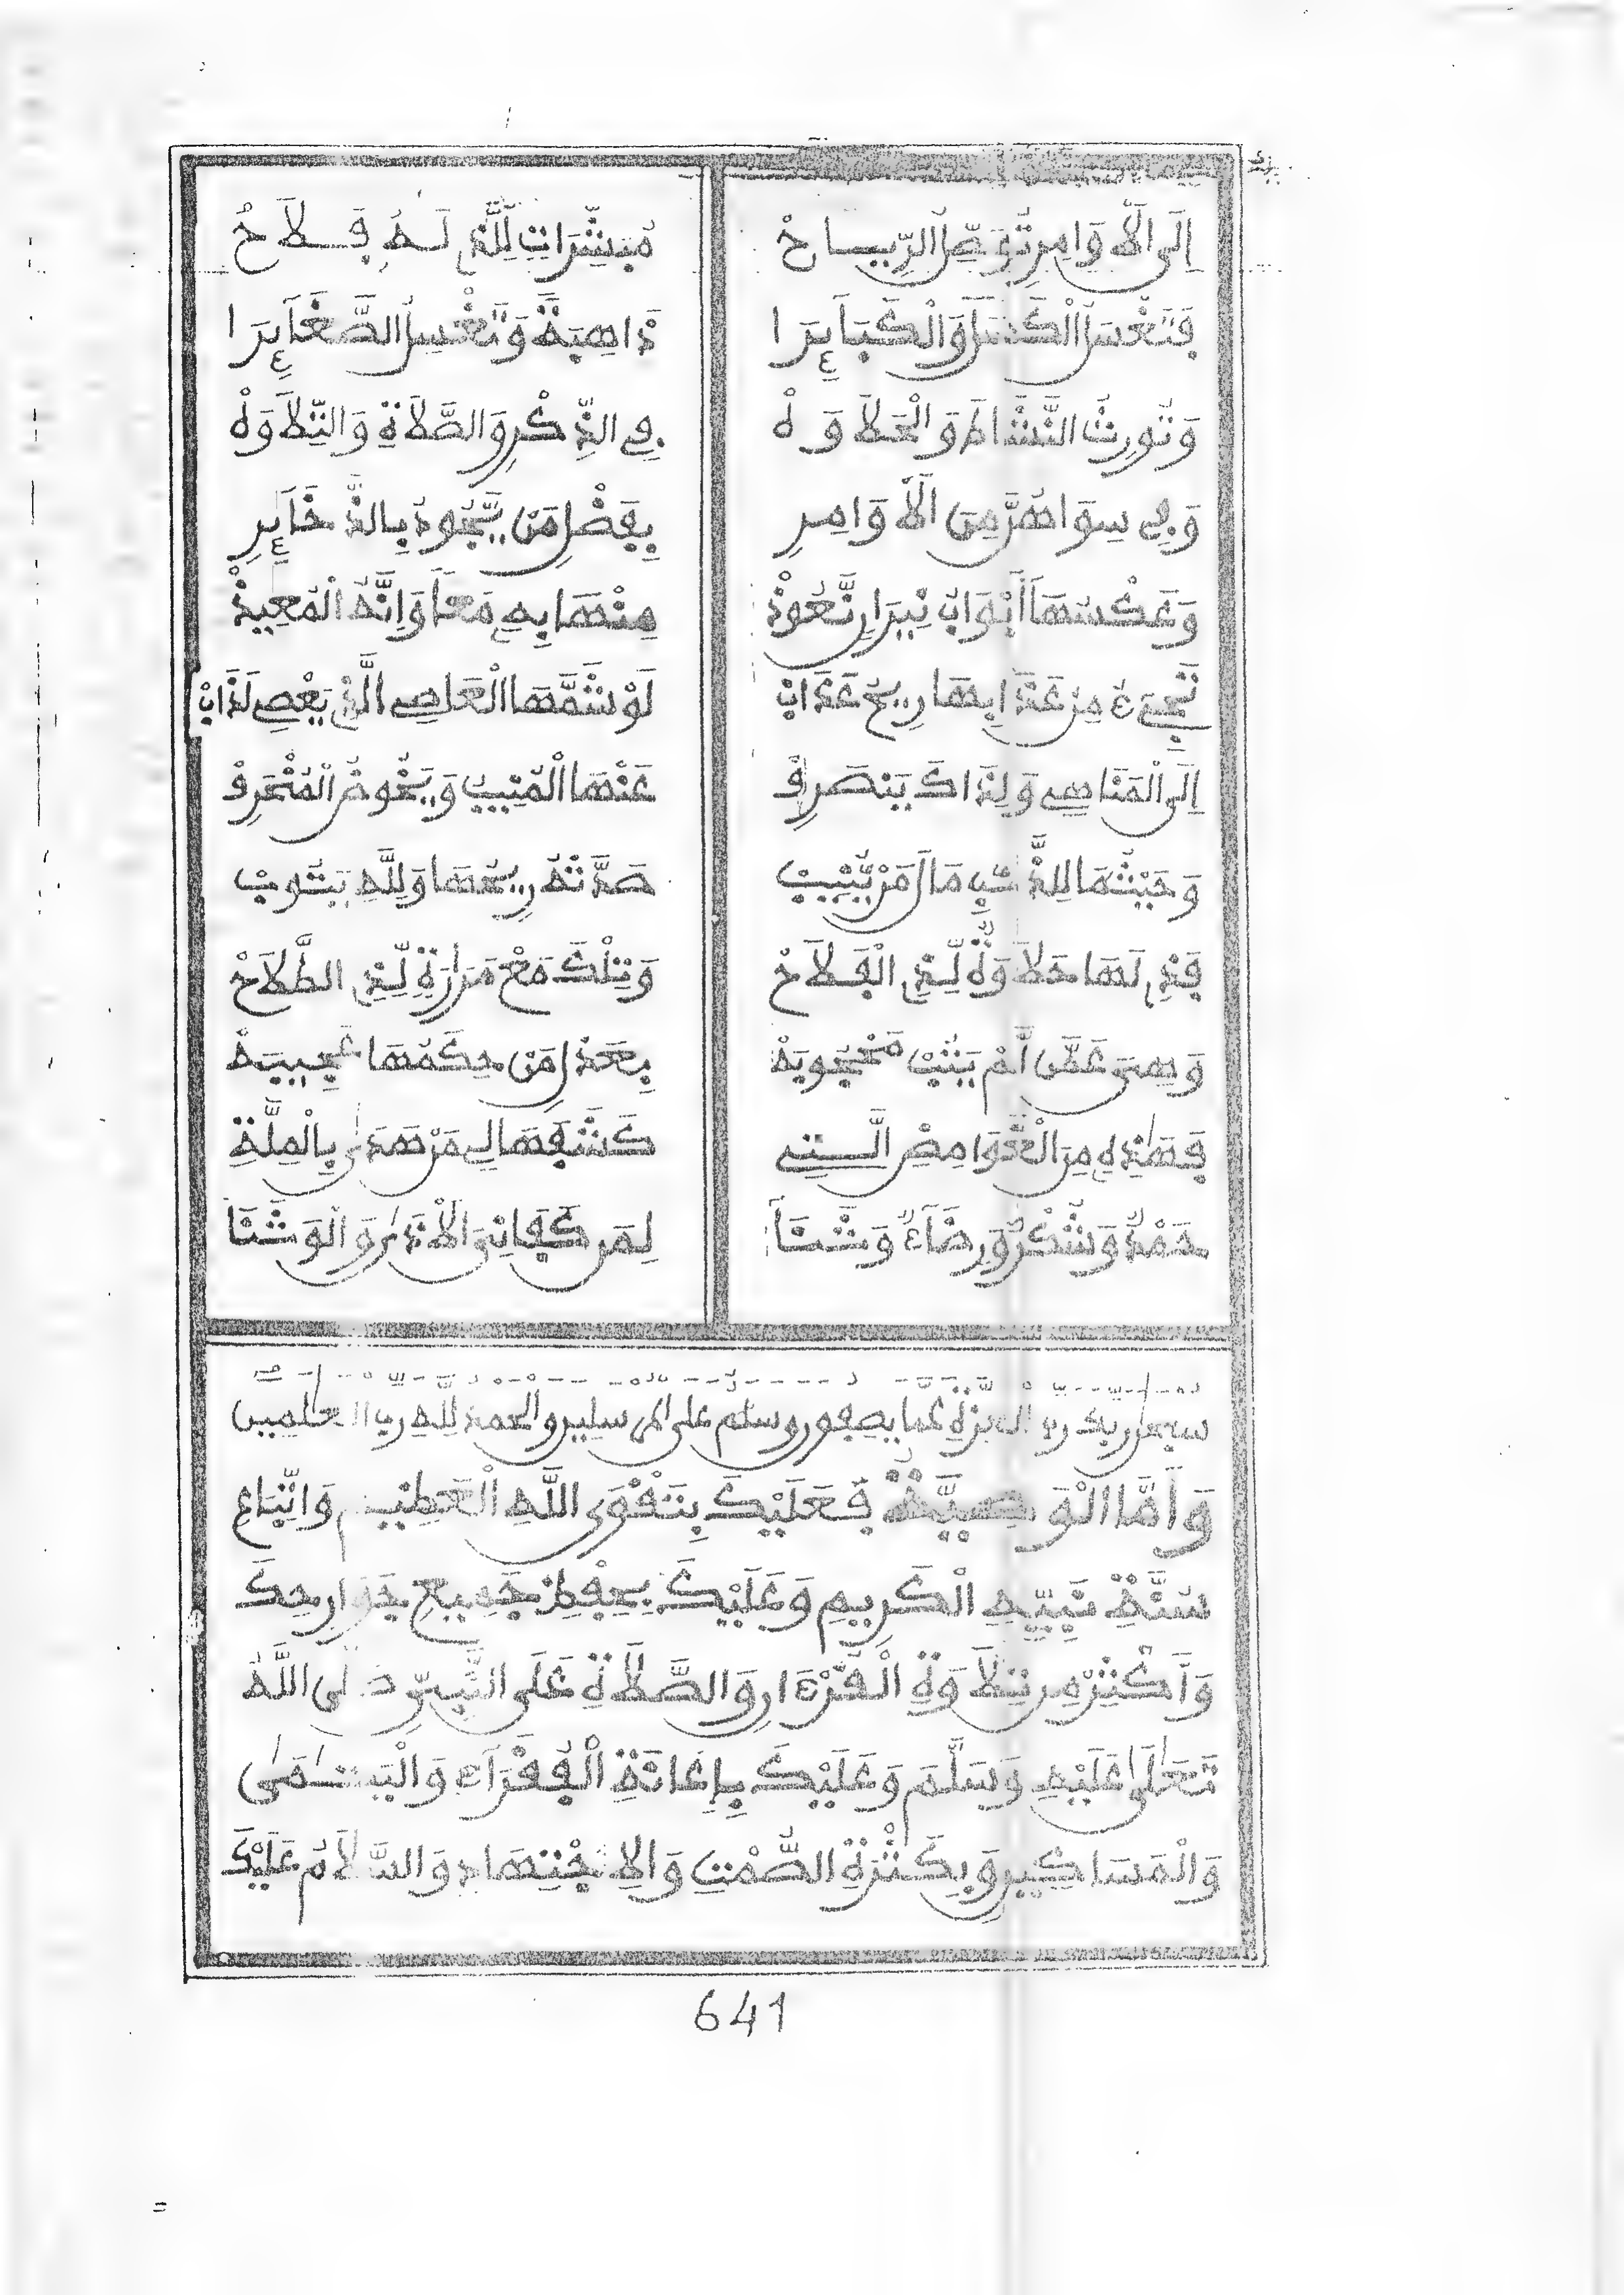 إِلَى الْأَوَامِرِ تُوَصِّلُ الرِّيَاحْ مُبَشِّرَاتٍ لِلَّذِي لَهُ فَلَاحْ
فَتَغْسِلُ الْكَسَلَ وَالْكَبَائِرَا ذَاهِبَةً وَتَغْسِلُ الصَّغَائِرَا
وَتُورِثُ النَّشَاطَ وَالْحَلَاوَهْ فِي الذِّكْرِ وَالصَّلَاةِ وَالتِّلَاوَهْ
وَفِي سِوَاهُنَّ مِنَ الْأَوَامِرِ بِفَضْلِ مَنْ يَجُودُ بِالذَّخَائِرِ
وَعَكْسُهَا أَبْوَابُ نِيرَانٍ نَعُوذْ مِنْهَا بِهِ مَعًا وَإِنَّهُ الْمُعِيذْ
تَجِيءُ مِنْ عَذَابِهَا رِيحُ عَذَابْ لَوْ شَمَّهَا الْعَاصِي الَّذِي يَعْصِي لَذَابْ
إِلَى الْمَنَاهِي وَلِذَاكَ يَنْصَرِفْ عَنْهَا الْمُنِيبُ وَيَخُوضُ الْمُنْحَرِفْ
وَحَيْثُمَا لِلذَّنْبِ مَالَ مَنْ يُنِيبْ صَدَّتْهُ رِيحُهَا وَلِلَّهِ يَتُوبْ
فَذِي لَهَا حَلَاوَةٌ لِذِي الْفَلَاحْ وَتِلْكَ مَعْ مَرَارَةٍ لِذِي الطَّلَاحْ
وَهِيَ عَمَّن لَّمْ يَتُبْ مَحْجُوبَهْ بِعَدْلِ مَنْ حِكَمُهَا عَجِيبَهْ
فَهَذِهِ مِنَ الْغَوَامِضِ الَّتِي كَشْفُهَا لِي مَنْ هَدَى بِالْمِلَّةِ
حَمْدٌ وَشُكْرٌ وَرِضَاءٌ وَثَنَا لِمَن كَفَانِيَ الْأَذَى وَالْوَثَنَا
سبحان ربك رب العزة عما يصفون وسلم على المرسلين والحمد لله رب العلمين
وَأَمَّا الْوَصِيَّةُ فَعَلَيْكَ بِتَقْوَى اللَّهِ الْعَظِيمِ وَاتِّبَاعِ
سُنَّةِ نَبِيِّهِ الْكَرِيمِ وَعَلَيْكَ بِحِفْظِ جَمِيعِ جَوَارِحِكَ
وَأَكْثِرْ مِن تِلَاوَةِ الْقُرْءَانِ وَالصَّلَاةِ عَلَى النَّبِيِّ صَلَّى اللَّهُ
تَعَالَى عَلَيْهِ وَسَلَّمَ وَعَلَيْكَ بِإِغَاثَةِ الْفُقَرَاءِ وَالْيَتَامَى
وَالْمَسَاكِينِ وَبِكَثْرَةِ الصَّمْتِ وَالِاجْتِهَادِ وَالسَّلَامُ عَلَيْكَ
641